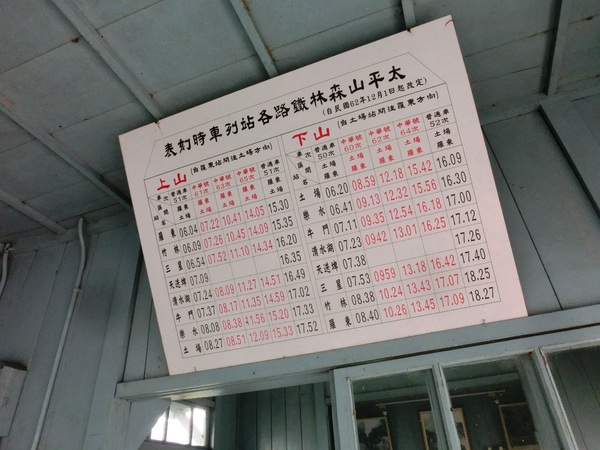 太平山森林鐵路各站列車時刻表
(自民國62年12月1日起改定)
上山 (自羅東站開往土場方向)
車次 普通車51次 中華號61次 中華號63次 中華號65次 普通車51次
區間 羅東 羅東 羅東 羅東 羅東
站名 土場 土場 土場 土場 土場
羅東 06.04 07.22 10.41 14.05 15.30
竹林 06.09 07.26 10.45 14.09 15.35
三星 07.54 07.52 11.10 14.34 16.20
天送埤 07.09 16.35
清水湖 07.24 08.09 11.27 14.51 16.49
牛鬥 07.37 08.17 11.35 14.59 17.02
樂水 08.08 08.38 11.56 15.20 17.33
土場 08.27 08.51 12.09 15.33 17.52
下山 (自土場站開往羅東方向)
車次 普通車50次 中華號60次 中華號62次 中華號64次 普通車52次
區間 土場 土場 土場 土場 土場
站名 羅東 羅東 羅東 羅東 羅東
土場 06.20 08.59 12.18 15.42 16.09
樂水 07.11 09.13 12.32 15.56 16.30
牛鬥 07.11 09.35 12.54 16.18 17.00
清水湖 07.23 0942 13.01 16.25 17.12
天送埤 07.38 17.26
三星 07.53 0959 13.18 16.42 17.40
竹林 08.38 10.24 13.43 17.07 18.25
羅東 08.40 10.26 13.45 17.09 18.27